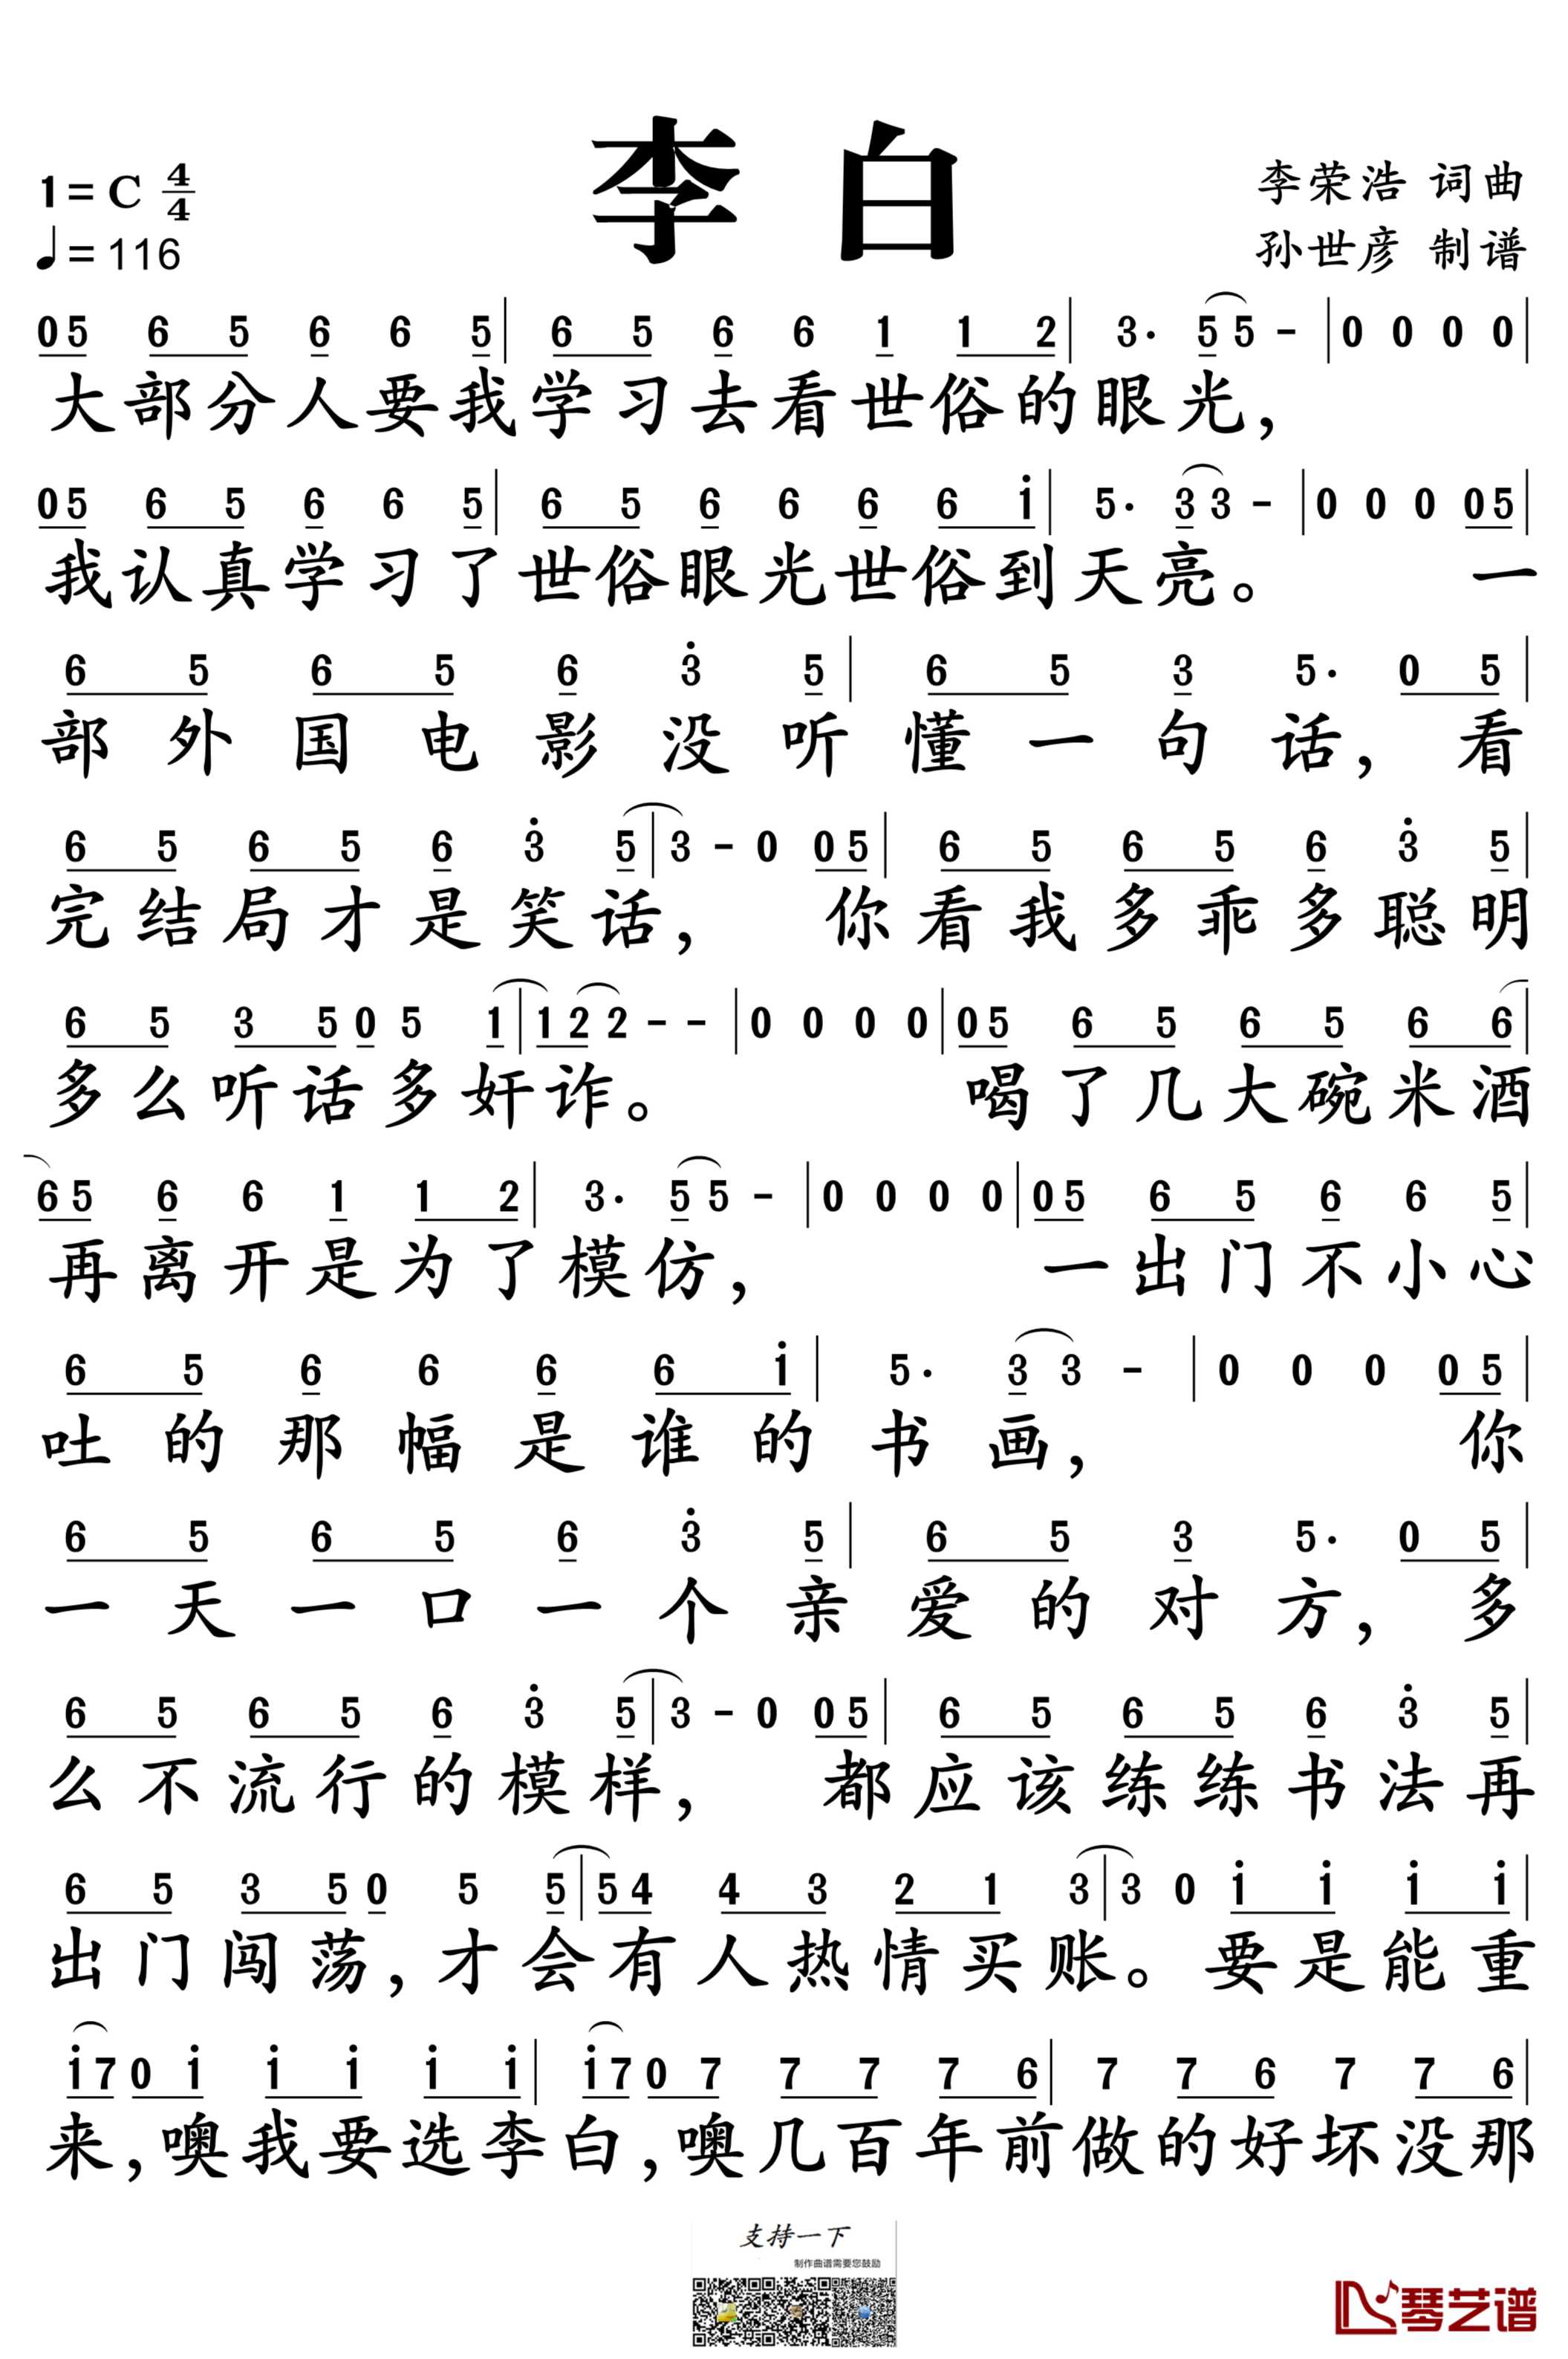 李白
1=C 4/4
♩=116
李荣浩 词曲
孙世彦 制谱
05 6 5 6 6 5| 6 5 6 6 1 1 2| 3· 55 - |0 0 0 0|
大部分人要我学习去看世俗的眼光，
05 6 5 6 6 5| 6 5 6 6 6 6 i| 5· 33 - |0 0 0 05|
我认真学习了世俗眼光世俗到天亮。 一
6 5 6 5 6 3̇ 5| 6 5 3 5· 0 5|
部外国电影没听懂一句话，看
6 5 6 5 6 3̇ 5|3 - 0 05| 6 5 6 5 6 3̇ 5|
完结局才是笑话， 你看我多乖多聪明
6 5 3 5 0 5 1|1 2 2 - - |0 0 0 0|05 6 5 6 5 6 6|
多么听话多奸诈。 喝了几大碗米酒
65 6 6 1 1 2| 3· 55 - |0 0 0 0|05 6 5 6 6 5|
再离开是为了模仿， 一出门不小心
6 5 6 6 6 6 i| 5· 3 3 - |0 0 0 0 5|
吐的那幅是谁的书画， 你
6 5 6 5 6 3̇ 5| 6 5 3 5· 0 5|
一天一口一个亲爱的对方，多
6 5 6 5 6 3̇ 5|3 - 0 05| 6 5 6 5 6 3̇ 5|
么不流行的模样， 都应该练练书法再
6 5 3 5 0 5 5|54 4 3 2 1 3|3 0 i i i i|
出门闯荡，才会有人热情买账。要是能重
i7 0 i i i i i| i7 0 7 7 7 7 6| 7 7 6 7 7 6|
来，噢我要选李白，噢几百年前做的好坏没那
支持一下
制作曲谱需要您鼓励
琴艺谱